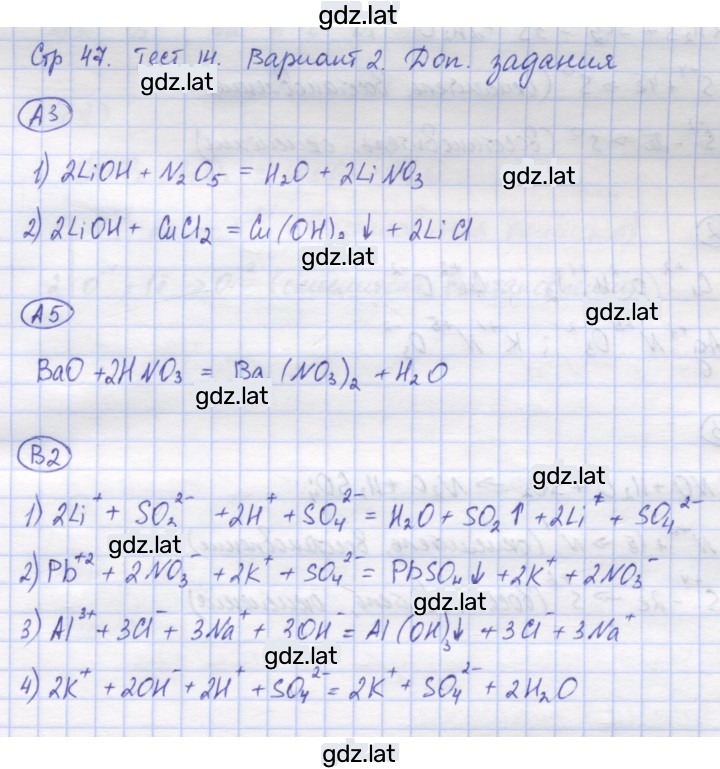 gdz.lat
Стр 47. Тест 14. Вариант 2. Доп. задания
gdz.lat
А3
1) 2LiOH + N₂O₅ = H₂O + 2LiNO₃
gdz.lat
2) 2LiOH + CuCl₂ = Cu(OH)₂ ↓ + 2LiCl
gdz.lat
gdz.lat
А5
BaO + 2HNO₃ = Ba(NO₃)₂ + H₂O
gdz.lat
В2
gdz.lat
1) 2Li⁺ + SO₂²⁻ + 2H⁺ + SO₄²⁻ = H₂O + SO₂↑ + 2Li⁺ + SO₄²⁻
gdz.lat
2) Pb⁺² + 2NO₃⁻ + 2K⁺ + SO₄²⁻ = PbSO₄↓ + 2K⁺ + 2NO₃⁻
gdz.lat
3) Al³⁺ + 3Cl⁻ + 3Na⁺ + 3OH⁻ = Al(OH)₃↓ + 3Cl⁻ + 3Na⁺
gdz.lat
4) 2K⁺ + 2OH⁻ + 2H⁺ + SO₄²⁻ = 2K⁺ + SO₄²⁻ + 2H₂O
gdz.lat